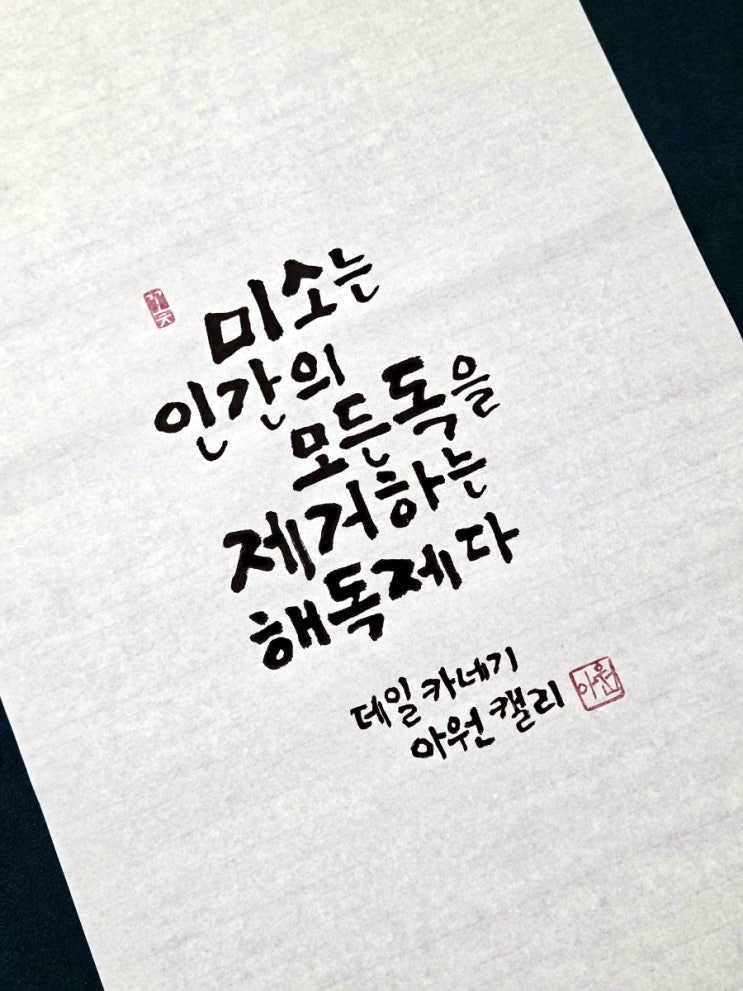 미소는
인간의
모든 독을
제거하는
해독제다
데일 카네기
아원 캘리
아원